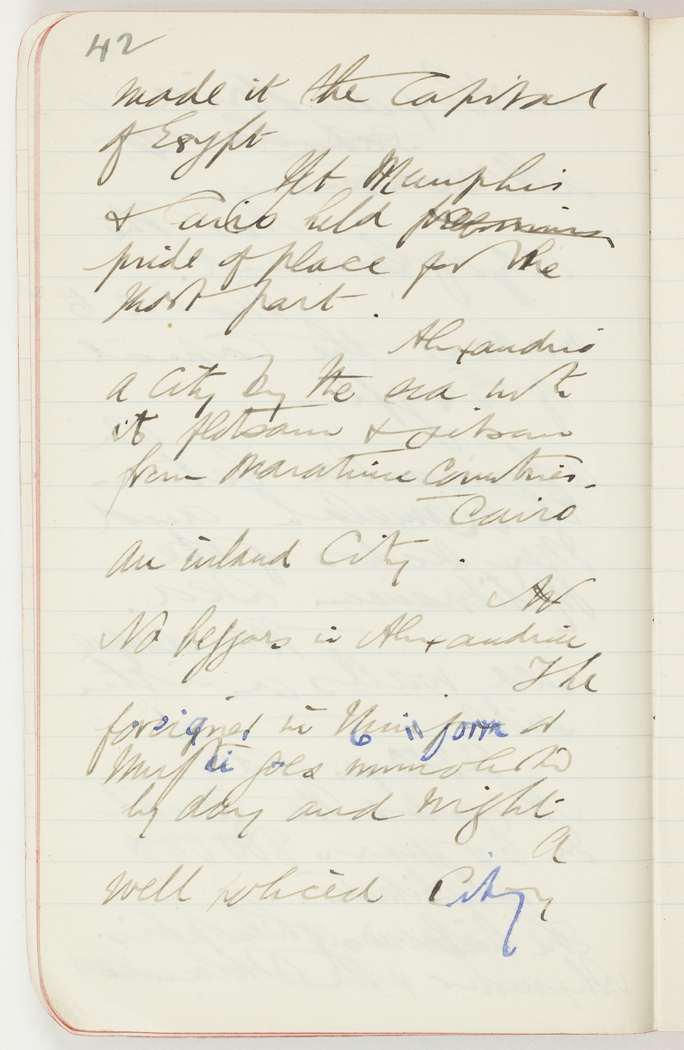 42
made it the Capital
of Egypt
Yet Memphis
& Cairo held
pride of place for the
most part.
Alexandria
a City by the sea with
it flotsam & jetsam
from Maratime Countries.
Cairo
an inland City.
No beggars in Alexandria
The
foreigner in Uniform or
Mufti goes unmolested
by day and night
A
well policed City